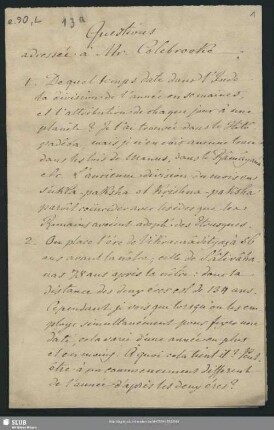 e.90,I. 132 1
Questions
adressées à Mr. Colebrooke
1. De quel temps date dans l'Inde
la division de l'année en semaines,
et l'attribution de chaque jour à une
planète? Je l'ai trouvée dans le Hito-
padésa, mais je n'en vois aucune trace
dans les lois de Manus, dans le Râmâyana
etc. L'ancienne division du mois en
sukla-paksha et krishna-paksha
paroît coïncider avec les ides que les
Romains avoient adopté des Etrusques.
2. On place l'ère de Vikramâditya à 56
ans avant la nôtre, celle de Sâlivâha-
nas 78 ans après la nôtre: donc la
distance des deux ères est de 134 ans.
Cependant je vois que lorsqu'on les em-
ploye simultanément pour fixer une
date, cela varie d'une année en plus
et en moins. A quoi cela tient-il? Peut-
être à un commencement différent
de l'année d'après les deux ères?
SLUB